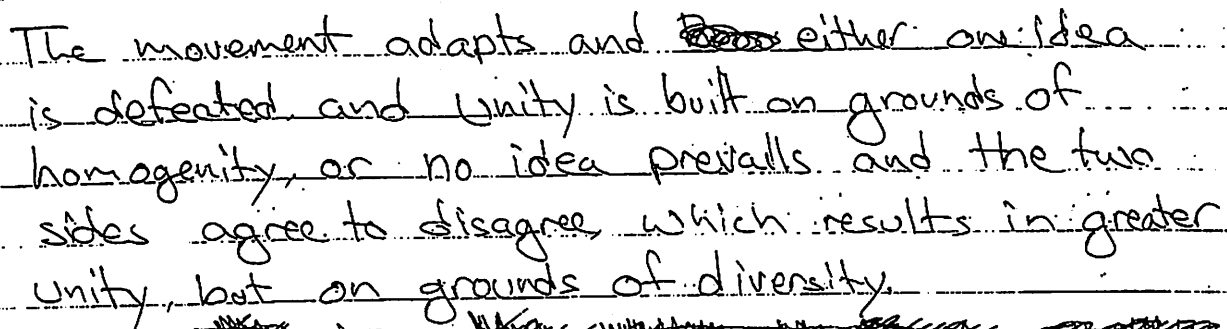 The movement adapts and either one idea
is defeated and unity is built on grounds of
homogenity, or no idea prevails and the two
sides agree to disagree, which results in greater
unity, but on grounds of diversity.